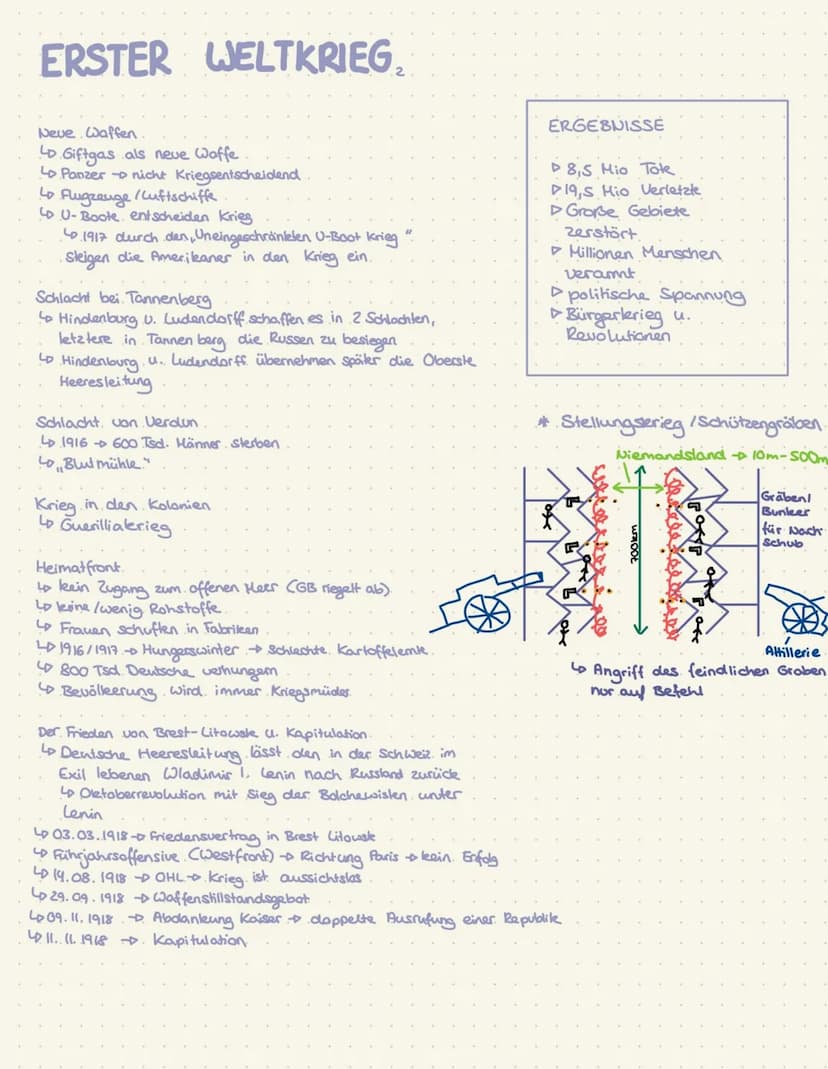 ERSTER WELTKRIEG 2
Neue Waffen
↳ Giftgas als neue Waffe
↳ Panzer → nicht Kriegsentscheidend
↳ Flugzeuge / Luftschiffe
↳ U-Boote entscheiden Krieg
↳ 1917 durch den „Uneingeschränkten U-Boot Krieg"
steigen die Amerikaner in den Krieg ein
Schlacht bei Tannenberg
↳ Hindenburg u. Ludendorff schaffen es in 2 Schlachten,
letztere in Tannenberg die Russen zu besiegen
↳ Hindenburg u. Ludendorff übernehmen später die Oberste
Heeresleitung
Schlacht von Verdun
↳ 1916 → 600 Tsd. Männer sterben
↳ „Blutmühle"
Krieg in den Kolonien
↳ Guerillakrieg
Heimatfront
↳ kein Zugang zum offenen Meer (GB riegelt ab)
↳ keine / wenig Rohstoffe
↳ Frauen schuften in Fabriken
↳ 1916/1917 → Hungerswinter → schlechte Kartoffelernte
↳ 800 Tsd. Deutsche verhungern
↳ Bevölkerung wird immer Kriegsmüder
Der Frieden von Brest-Litowsk u. Kapitulation
↳ Deutsche Heeresleitung lässt den in der Schweiz im
Exil lebenen Wladimir I. Lenin nach Russland zurück
↳ Oktoberrevolution mit Sieg der Bolchewisten unter
Lenin
↳ 03.03.1918 → Friedensvertrag in Brest Litowsk
↳ Führjahrsoffensive (Westfront) → Richtung Paris → kein Erfolg
↳ 14.08.1918 → OHL → Krieg ist aussichtslos
↳ 29.09.1918 → Waffenstillstandsgebot
↳ 09.11.1918 → Abdankung Kaiser → doppelte Ausrufung einer Republik
↳ 11.11.1918 → Kapitulation
ERGEBNISSE
▷ 8,5 Mio Tote
▷ 19,5 Mio Verletzte
▷ Große Gebiete
zerstört
▷ Millionen Menschen
verarmt
▷ politische Spannung
▷ Bürgerkrieg u.
Revolutionen
* Stellungskrieg / Schützengräben
Niemandsland → 10m-500m
700km
Gräben/
Bunker
für Nach
schub
Attillerie
↳ Angriff des feindlichen Graben
nur auf Befehl